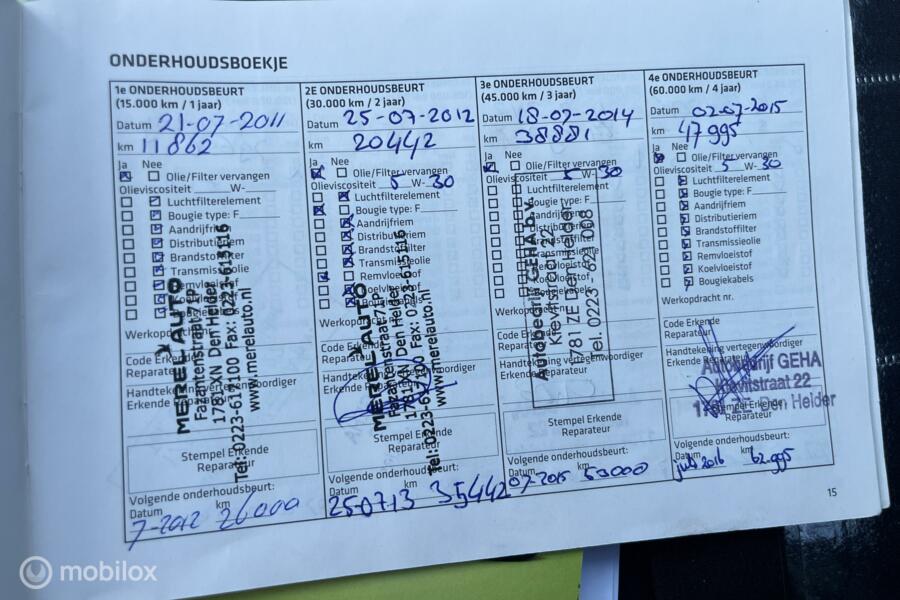 ONDERHOUDSBOEKJE
1e ONDERHOUDSBEURT
(15.000 km / 1 jaar)
Datum 21-07-2011
km 11862
Ja Nee
Olie/Filter vervangen
Olieviscositeit W-
Luchtfilterelement
Bougie type: F
Aandrijfriem
Distributieriem
Brandstoffilter
Transmissieolie
Remvloeistof
Koelvloeistof
Werkopdracht
Code Erkende
Reparateur
Handtekening vertegenwoordiger
Erkende Reparateur
MEREL AUTO
Fazantenstraat 75
1781 XN Den Helder
Tel: 0223-617100 Fax: 0223-615116
www.merelauto.nl
Stempel Erkende
Reparateur
Volgende onderhoudsbeurt:
Datum km
7-2012 26000
2E ONDERHOUDSBEURT
(30.000 km / 2 jaar)
Datum 25-07-2012
km 20442
Ja Nee
Olie/Filter vervangen
Olieviscositeit 5 W- 30
Luchtfilterelement
Bougie type: F
Aandrijfriem
Distributieriem
Brandstoffilter
Transmissieolie
Remvloeistof
Koelvloeistof
Bougiekabels
Werkopdracht
Code Erkende
Reparateur
Handtekening vertegenwoordiger
Erkende Reparateur
MEREL AUTO
Fazantenstraat 75
1781 XN Den Helder
Tel: 0223-617100 Fax: 0223-615116
www.merelauto.nl
Stempel Erkende
Reparateur
Volgende onderhoudsbeurt:
Datum km
25-07-13 35442
3e ONDERHOUDSBEURT
(45.000 km / 3 jaar)
Datum 18-07-2014
km 38881
Ja Nee
Olie/Filter vervangen
Olieviscositeit 5 W- 30
Luchtfilterelement
Bougie type: F
Aandrijfriem
Distributieriem
Brandstoffilter
Transmissieolie
Remvloeistof
Koelvloeistof
Bougiekabels
Werkopdracht nr.
Code Erkende
Reparateur
Handtekening vertegenwoordiger
Erkende Reparateur
Autobedrijf GEHA b.v.
Kievitstraat 22
1781 ZE Den Helder
Tel. 0223 -
Stempel Erkende
Reparateur
Volgende onderhoudsbeurt:
Datum km
07-2015 53000
4e ONDERHOUDSBEURT
(60.000 km / 4 jaar)
Datum 02-07-2015
km 47995
Ja Nee
Olie/Filter vervangen
Olieviscositeit 5 W- 30
Luchtfilterelement
Bougie type: F
Aandrijfriem
Distributieriem
Brandstoffilter
Transmissieolie
Remvloeistof
Koelvloeistof
Bougiekabels
Werkopdracht nr.
Code Erkende
Reparateur
Handtekening vertegenwoordiger
Erkende Reparateur
Autobedrijf GEHA
Kievitstraat 22
1781 ZE Den Helder
Stempel Erkende
Reparateur
Volgende onderhoudsbeurt:
Datum km
juli 2016 62.995
15
mobilox